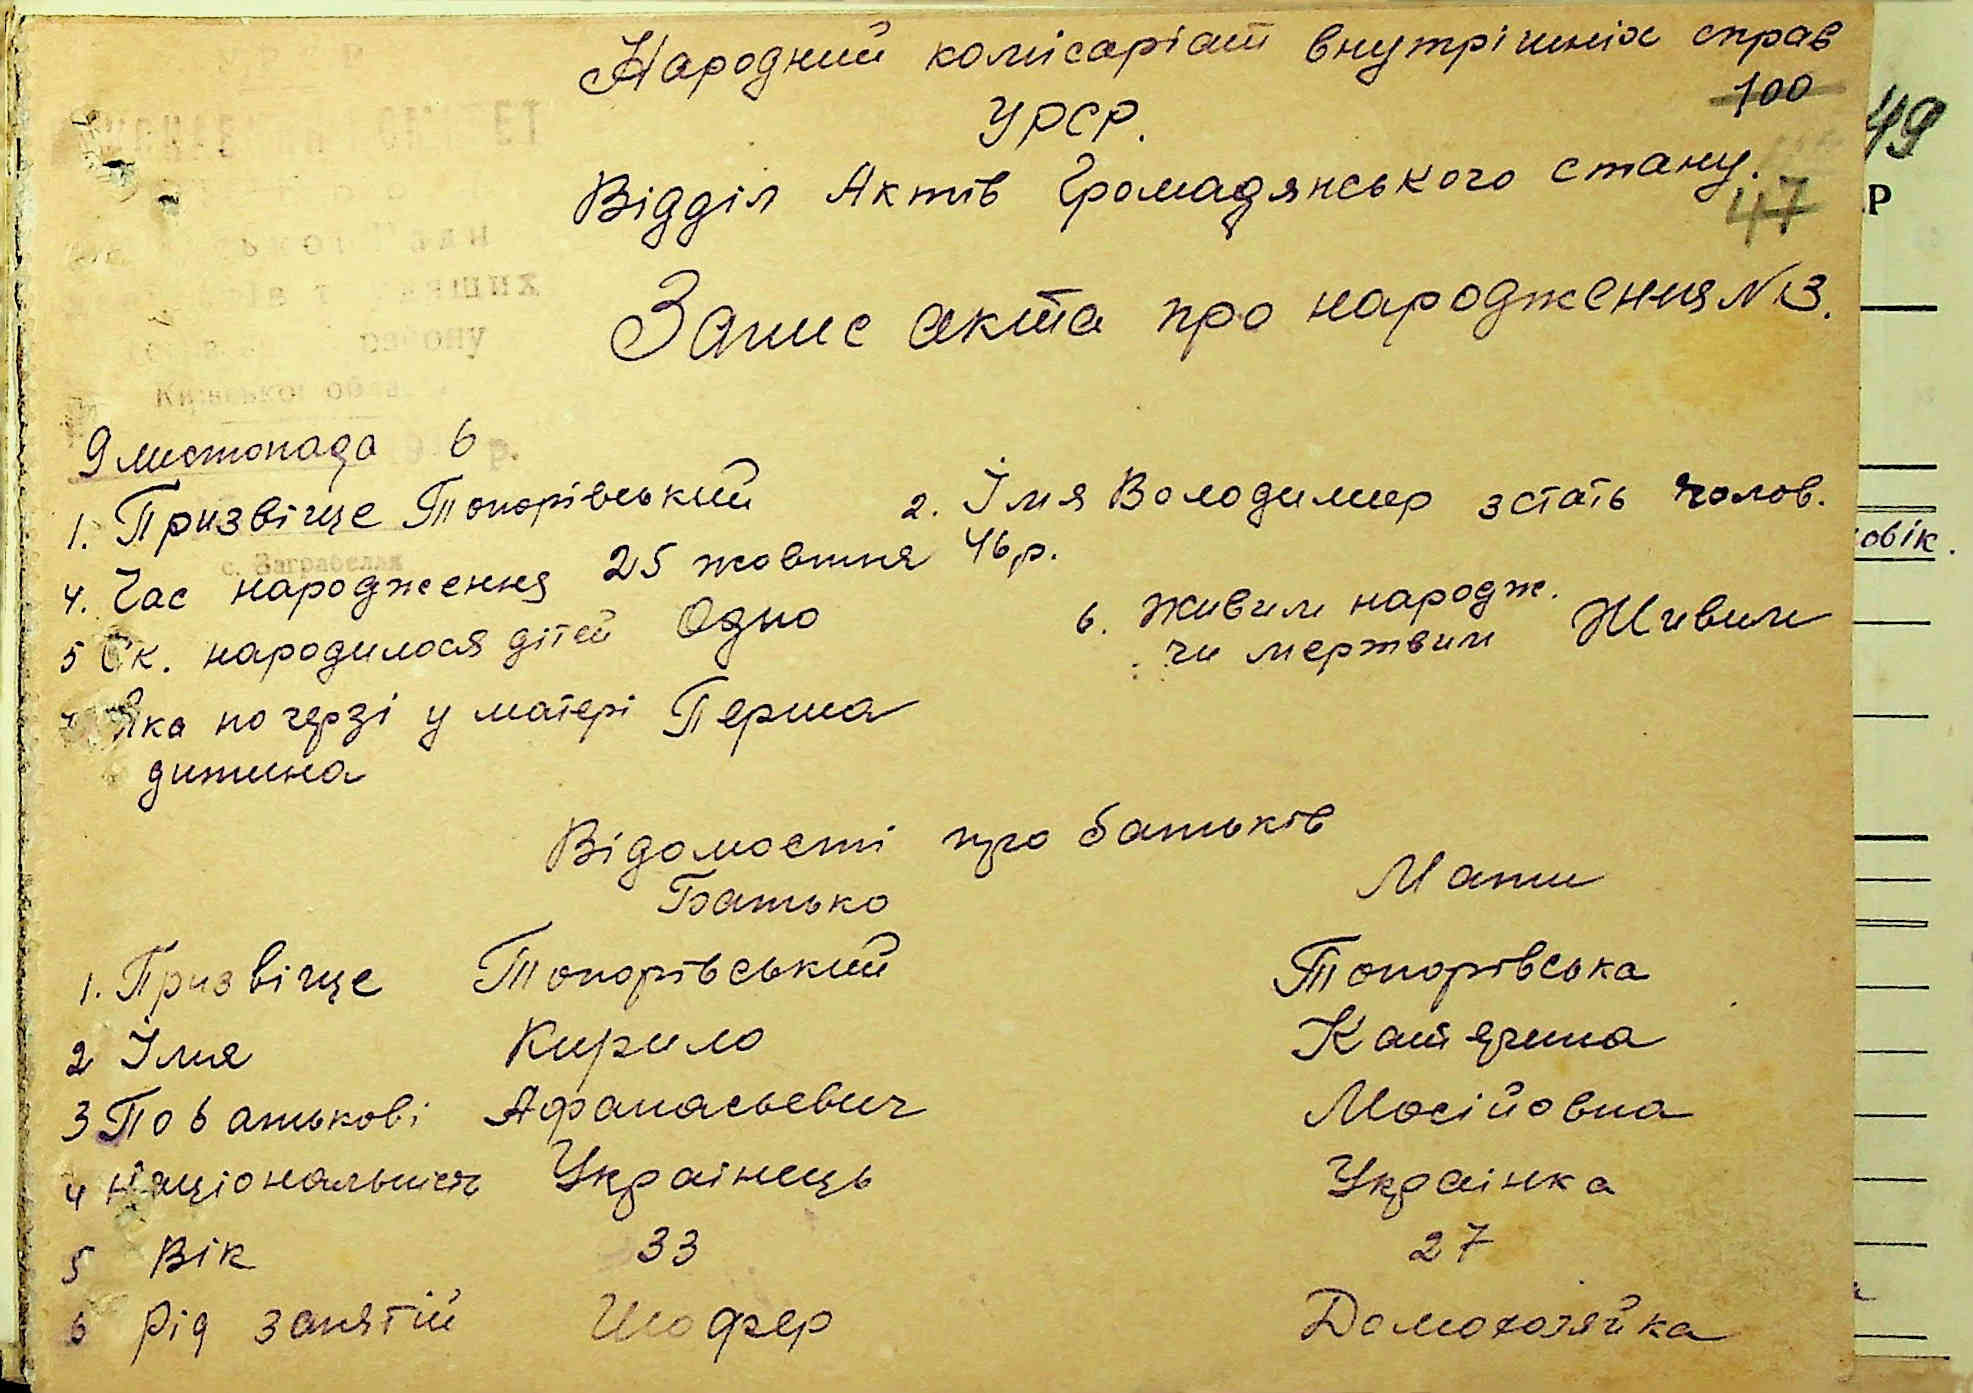 Народний комісаріат внутрішніх справ
100
УРСР.
49
Відділ Актів Громадянського стану.
47
Р
Запис акта про народження №3.
району
Київської
9 листопада 6
р.
1. Призвіще Топорівський 2. Імя Володимер 3 стать чолов.
овік.
с. Заграбелля
4. Час народження 25 жовтня 46р.
5 Ск. народилося дітей Одно 6. Живим народж.
чи мертвим Живим
Яка по черзі у матері Перша
дитина
Відомості про батьків
Батько Мати
1. Призвіще Топорівський Топорівська
2 Імя Кирило Катерина
3 По батькові Афанасьевич Мосійовна
4 Національність Украінець Украінка
5 Вік 33 27
6 Рід занятій Шофер Домохозяйка